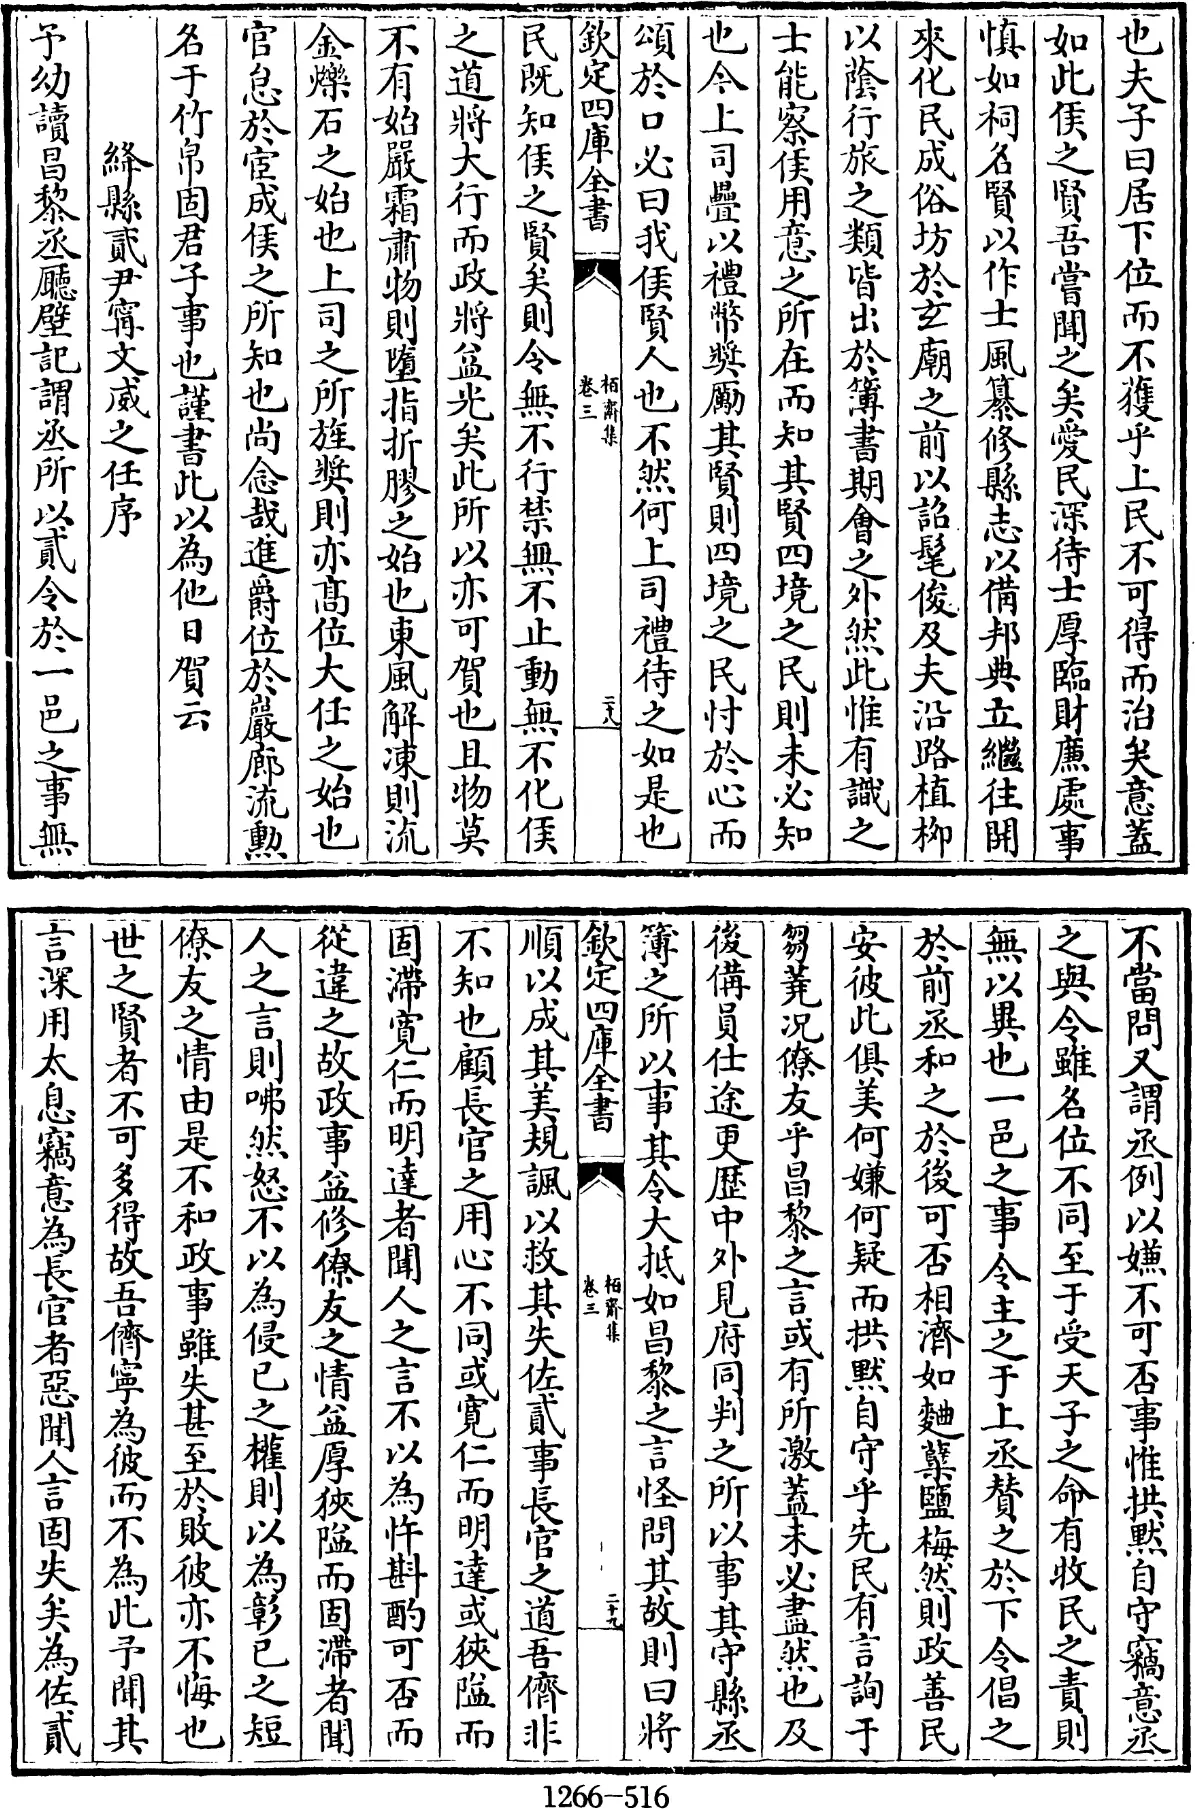 也夫子曰居下位而不獲乎上民不可得而治矣意蓋
如此侯之賢吾嘗聞之矣愛民深待士厚臨財廉處事
慎如祠名賢以作士風纂修縣志以備邦典立繼往開
來化民成俗坊於玄廟之前以詔髦俊及夫沿路植柳
以蔭行旅之類皆出於簿書期會之外然此惟有識之
士能察侯用意之所在而知其賢四境之民則未必知
也今上司疊以禮幣奬勵其賢則四境之民忖於心而
頌於口必曰我侯賢人也不然何上司禮待之如是也
欽定四庫全書
栢齋集
卷三
二十八
民既知侯之賢矣則令無不行禁無不止動無不化侯
之道將大行而政將益光矣此所以亦可賀也且物莫
不有始嚴霜肅物則墮指折膠之始也東風解凍則流
金爍石之始也上司之所旌奬則亦高位大任之始也
官怠於宦成侯之所知也尚念哉進爵位於巖廊流勲
名于竹帛固君子事也謹書此以為他日賀云
絳縣貳尹甯文威之任序
予幼讀昌黎丞廳壁記謂丞所以貳令於一邑之事無
不當問又謂丞例以嫌不可否事惟拱默自守竊意丞
之與令雖名位不同至于受天子之命有牧民之責則
無以異也一邑之事令主之于上丞贊之於下令倡之
於前丞和之於後可否相濟如麯糵鹽梅然則政善民
安彼此俱美何嫌何疑而拱默自守乎先民有言詢于
芻蕘况僚友乎昌黎之言或有所激蓋未必盡然也及
後備員仕途更歴中外見府同判之所以事其守縣丞
簿之所以事其令大抵如昌黎之言怪問其故則曰將
欽定四庫全書
栢齋集
卷三
二十九
順以成其美規諷以救其失佐貳事長官之道吾儕非
不知也顧長官之用心不同或寛仁而明達或狹隘而
固滯寛仁而明達者聞人之言不以為忤斟酌可否而
從違之故政事益修僚友之情益厚狹隘而固滯者聞
人之言則咈然怒不以為侵已之權則以為彰已之短
僚友之情由是不和政事雖失甚至於敗彼亦不悔也
世之賢者不可多得故吾儕寧為彼而不為此予聞其
言深用太息竊意為長官者惡聞人言固失矣為佐貳
1266-516